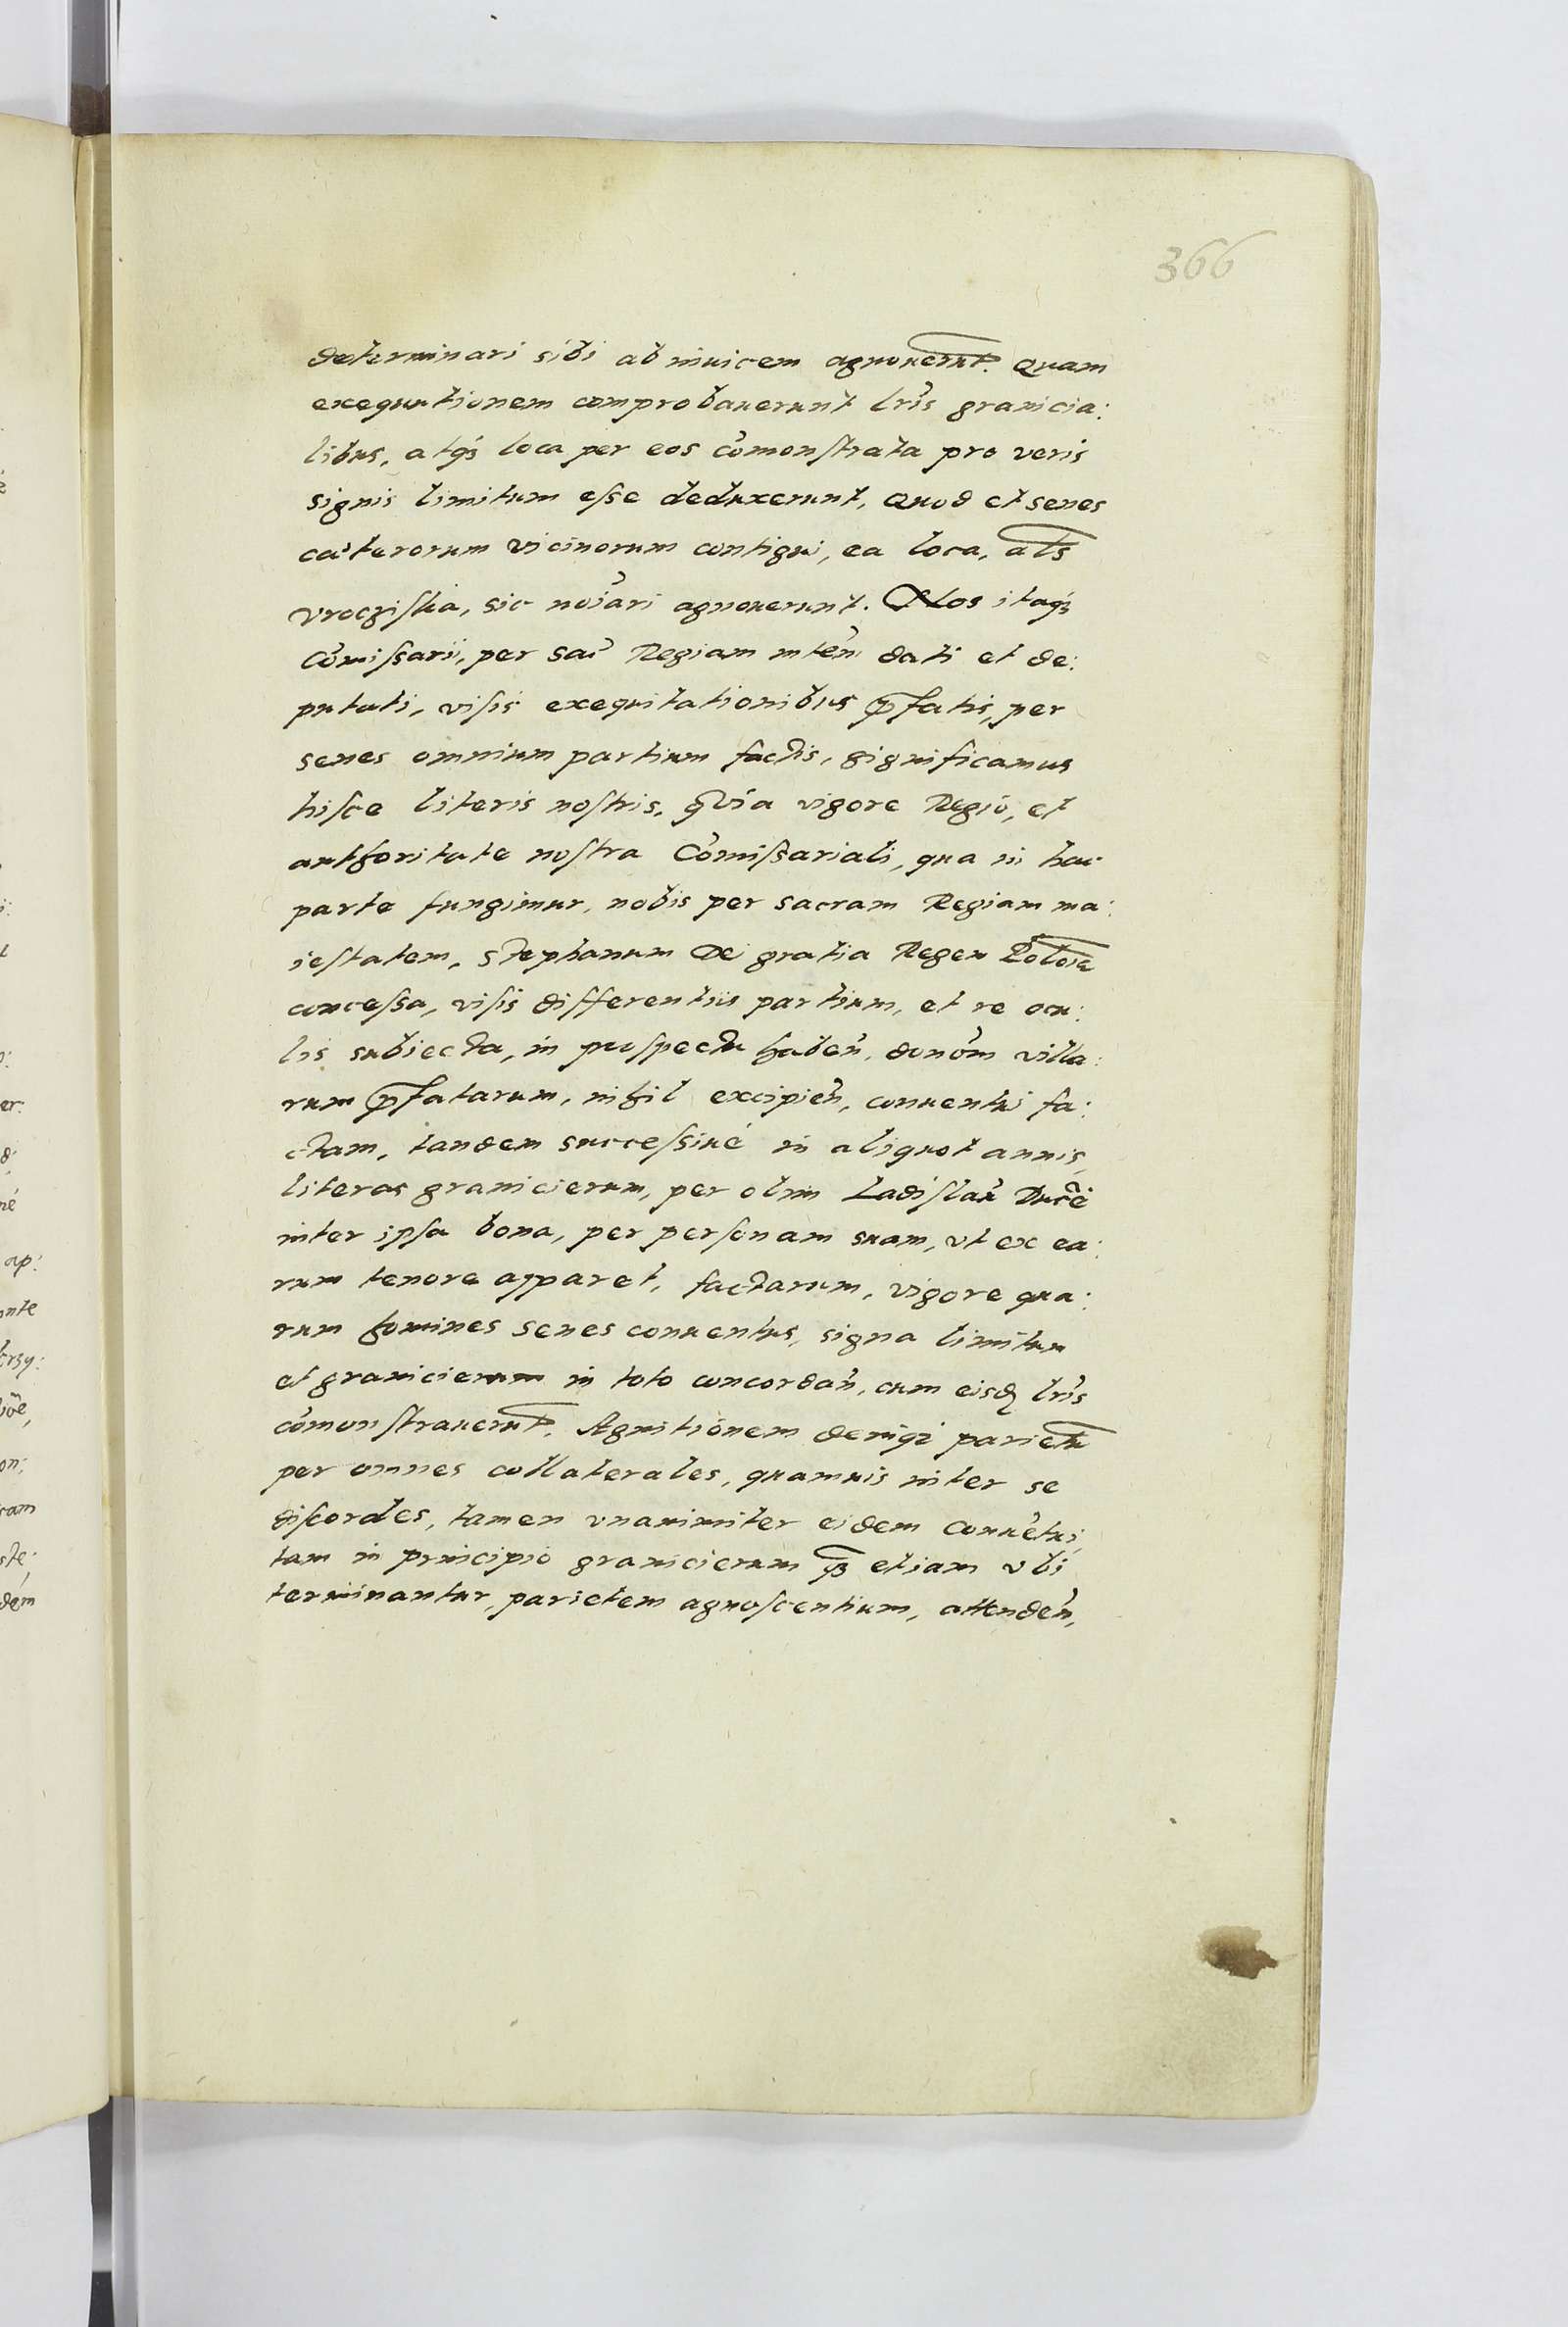 366
determinari sibi ab inuicem agnouerunt. Quam
exequutionem comprobauerunt lr̃is granicia:
libus, atq́₃ loca per eos com̃onstrata pro veris
signis limitum esse deduxerunt, Quod et senes
cæterorum vicinorum contigui, ea loca, als
vrocziska, sic noĩari agnouerunt. Nos itaq₃
Com̃issarii, per Sac̃ Regiam mtẽm dati et de:
putati, visis exequitationibus p̃fatis, per
senes omnium partium factis, significamus
hisce literis nostris, quia vigore Regio, et
authoritate nostra Com̃issariali, qua in hac
parte fungimur, nobis per sacram Regiam ma:
iestatem, Stephanum Dei gratia Regem Polõiæ
concessa, visis differentiis partium, et re ocu:
lis subiecta, in prospectu habeñ, donõm villa:
rum p̃fatarum, nihil excipieñ, conuentui fa:
ctam, tandem successiué in aliquot annis,
literas granicierum, per olim Ladislaũ Ducẽ
inter ipsa bona, per personam suam, vt ex ea:
rum tenore apparet, factarum, vigore qua:
rum homines senes conuentus, signa limitum
et granicierum in toto concordañ, cum eisd lr̃is
com̃onstrauerunt. Agnitionem deniq₃ parietũ
per omnes collaterales, quamuis inter se
discordes, tamen vnanimiter eidem conuẽtui,
tam in principio granicierum q̃₃ etiam vbi
terminantur, parietem agnoscentium, attendeñ,